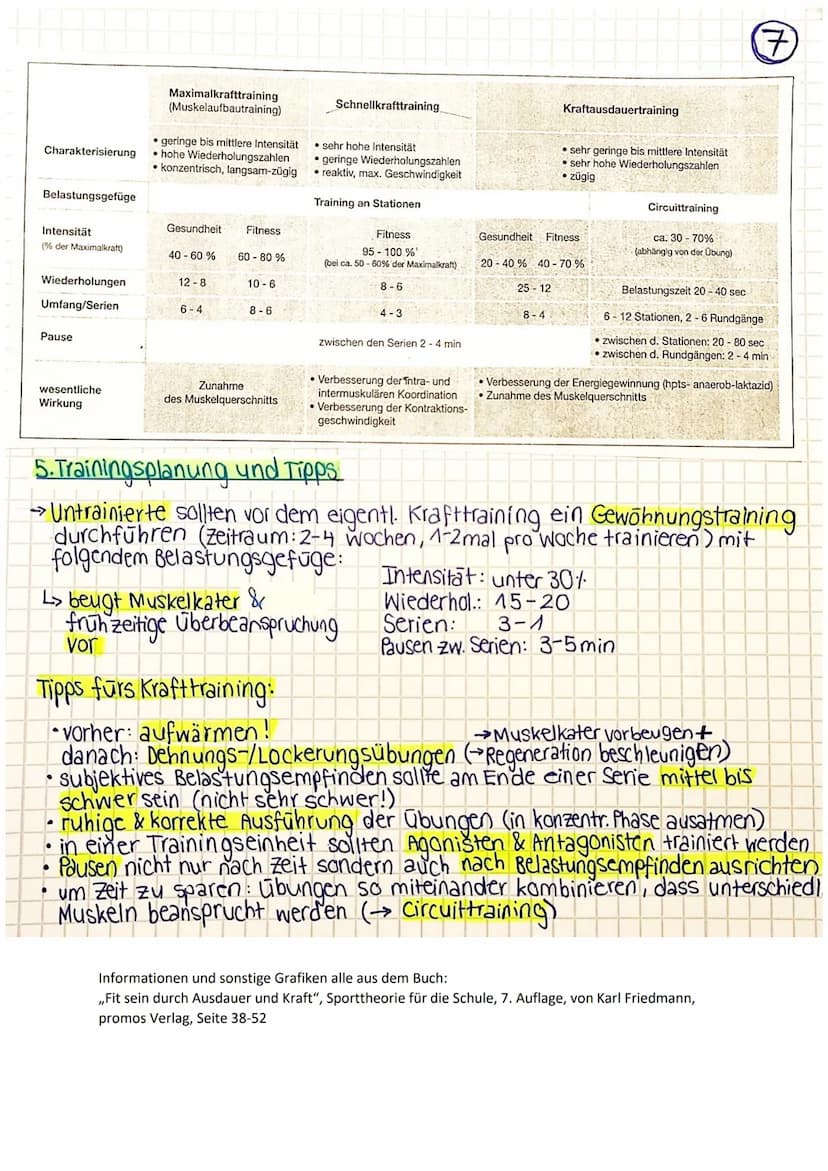 7
Maximalkrafttraining
(Muskelaufbautraining)
Schnellkrafttraining
Kraftausdauertraining
Charakterisierung
• geringe bis mittlere Intensität
• hohe Wiederholungszahlen
• konzentrisch, langsam-zügig
• sehr hohe Intensität
• geringe Wiederholungszahlen
• reaktiv, max. Geschwindigkeit
• sehr geringe bis mittlere Intensität
• sehr hohe Wiederholungszahlen
• zügig
Belastungsgefüge
Training an Stationen
Circuittraining
Intensität
(% der Maximalkraft)
Gesundheit Fitness
40 - 60 % 60 - 80 %
Fitness
95 - 100 %
(bei ca. 50 - 60% der Maximalkraft)
Gesundheit Fitness
20 - 40 % 40 - 70 %
ca. 30 - 70%
(abhängig von der Übung)
Wiederholungen
12 - 8 10 - 6
8 - 6
25 - 12
Belastungszeit 20 - 40 sec
Umfang/Serien
6 - 4 8 - 6
4 - 3
8 - 4
6 - 12 Stationen, 2 - 6 Rundgänge
Pause
zwischen den Serien 2 - 4 min
• zwischen d. Stationen: 20 - 80 sec
• zwischen d. Rundgängen: 2 - 4 min
wesentliche
Wirkung
Zunahme
des Muskelquerschnitts
• Verbesserung der intra- und
intermuskulären Koordination
• Verbesserung der Kontraktions-
geschwindigkeit
• Verbesserung der Energiegewinnung (hpts- anaerob-laktazid)
• Zunahme des Muskelquerschnitts
5. Trainingsplanung und Tipps
→ Untrainierte sollten vor dem eigentl. Krafttraining ein Gewöhnungstraining
durchführen (Zeitraum: 2-4 Wochen, 1-2mal pro Woche trainieren) mit
folgendem Belastungsgefüge:
Intensität: unter 30%
↳ beugt Muskelkater & Wiederhol.: 15-20
frühzeitige Überbeanspruchung Serien: 3-1
vor Pausen zw. Serien: 3-5min
Tipps fürs Krafttraining:
• vorher: aufwärmen! → Muskelkater vorbeugen +
danach: Dehnungs-/Lockerungsübungen (→Regeneration beschleunigen)
• subjektives Belastungsempfinden sollte am Ende einer Serie mittel bis
schwer sein (nicht sehr schwer!)
• ruhige & korrekte Ausführung der Übungen (in konzentr. Phase ausatmen)
• in einer Trainingseinheit sollten Agonisten & Antagonisten trainiert werden
• Pausen nicht nur nach Zeit sondern auch nach Belastungsempfinden ausrichten
• um Zeit zu sparen: Übungen so miteinander kombinieren, dass unterschiedl
Muskeln beansprucht werden (→ Circuittraining)
Informationen und sonstige Grafiken alle aus dem Buch:
„Fit sein durch Ausdauer und Kraft“, Sporttheorie für die Schule, 7. Auflage, von Karl Friedmann,
promos Verlag, Seite 38-52